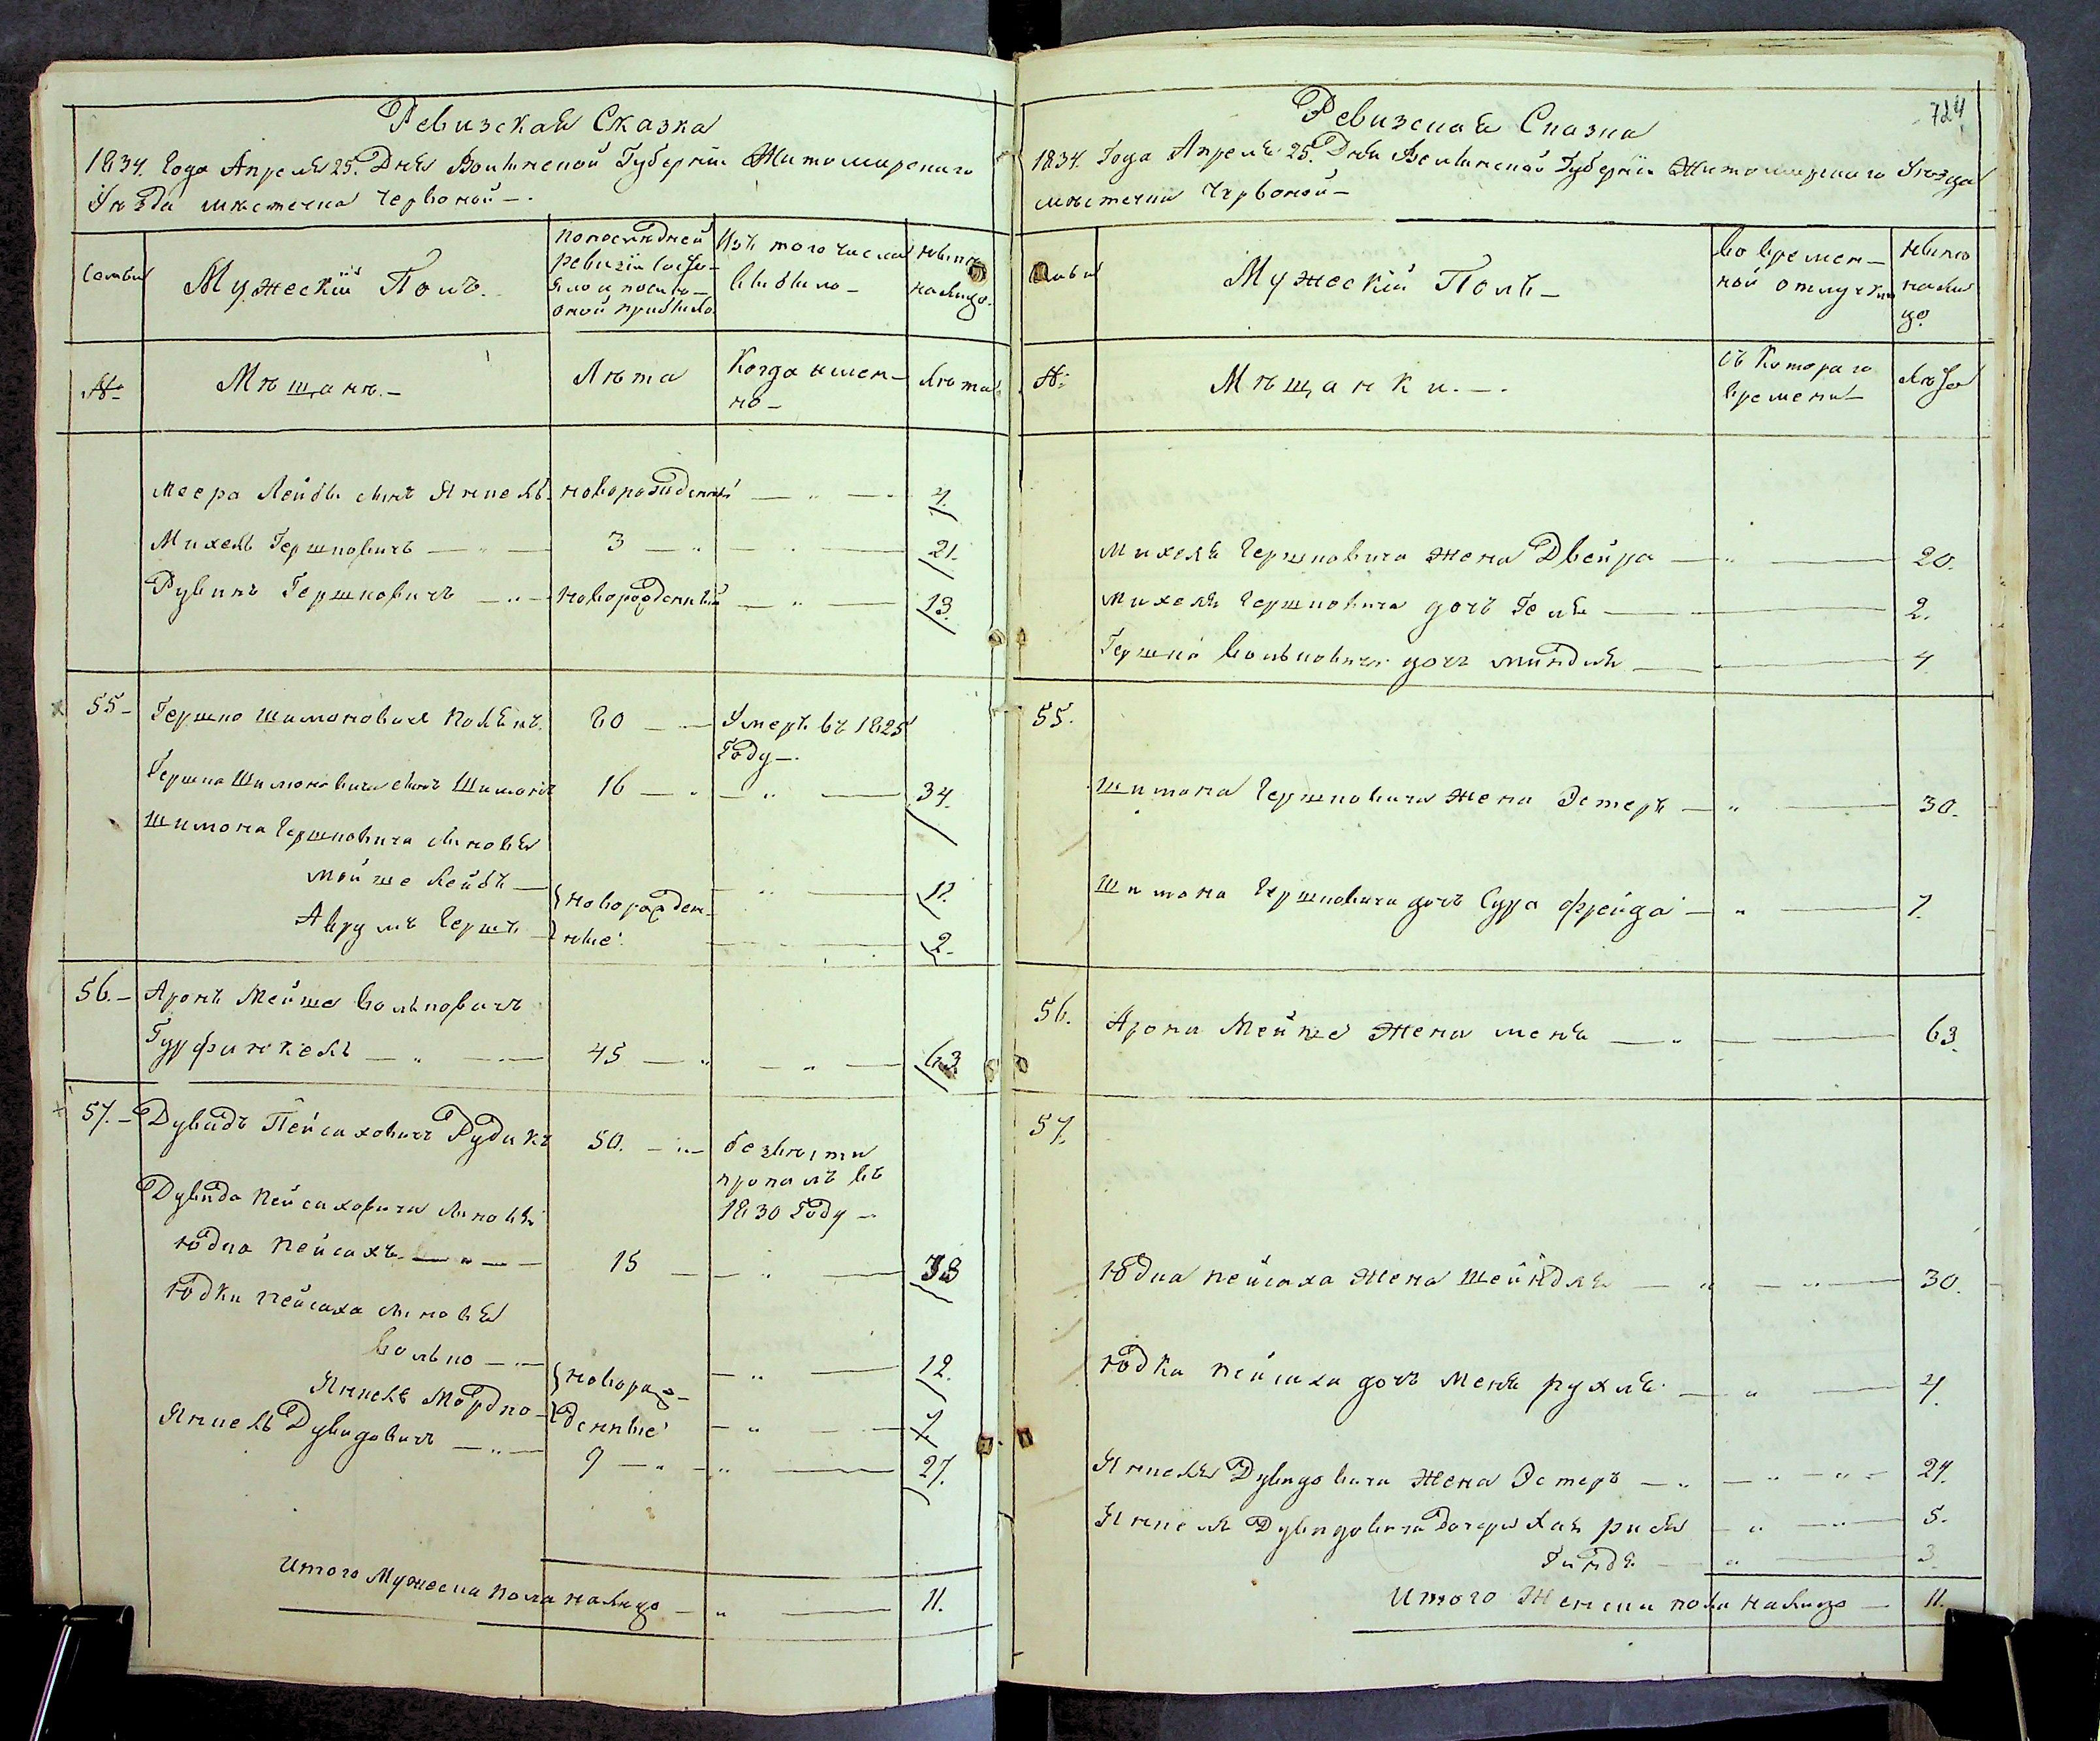 Ревизская Сказка
1834. Года Апреля 25. Дня Волынской Губернии Житомирского
Уезда местечка Червоной —.
Семьи
Мужескій Полъ.
По последней ревизіи состояло и после оной прибыло
Изъ того числа выбыло —
Ныне налицо.
№
Мещане. —
Лета
Когда имен-
но —
Лета
Меера Лейбы сынъ Янкель новорожденный — „ — 4.
Михель Гершковичъ — „ — 3 — „ — „ — 21.
Рувинъ Гершковичъ — „ — новорожденный — „ — 13.
55 — Гершко Шимоновичъ 60 — Умеръ въ 1825
Году —.
Гершка Шимоновича сынъ Шимонъ 16 — „ — „ — 34.
Шимона Гершковича сыновья
Мойше Лейбъ — } новорожден- — „ — 11.
Аврумъ Гершъ — } ные — 2.
56. — Аронъ Мейше Вольковичъ
Гурфинкель — „ — 45 — „ — „ — 63
57. — Дувидъ Пейсаховичъ Рудикъ 50. — „ — безвести
пропалъ въ
1830 Году —
Дувида Пейсаховича сыновья
Юдка Пейсахъ — „ — 15 — „ — 33
Юдки Пейсаха сыновья
Волько — } новорож- — „ — 12.
Янкель Мордко — } денные — „ — 7
Янкель Дувидовичъ — „ — 9 — „ — „ — 27.
Итого Мужеска пола налицо — „ — 11.
724
Ревизская Сказка
1834. Года Апреля 25. Дня Волынской Губерніи Житомирского Уезда
местечка Червоной —
Семьи
Мужескій Полъ —
Во времен-
ной отлучки
Ныне
нали
цо.
№
Мещанки. —.
Съ Которого
времени
Лета
Михеля Гершковича жена Двейра — „ — 20.
Михеля Гершковича дочь Геля — 2.
Гершка Вольковича дочь Миндля — 4
55.
Шимона Гершковича жена Эстеръ — „ — 30.
Шимона Гершковича дочь Сура Фрейда — „ — 7.
56. Арона Мейше Жена Меня — „ — 63.
57.
Юдка Пейсаха Жена Шейндля — „ — „ — 30.
Юдки Пейсаха дочь Меня Рухля — „ — 4.
Янкеля Дувидовича Жена Эстеръ — „ — „ — „ — 24.
Янкеля Дувидовича дочери Хая Рися — „ — „ — 5.
Гиндя — „ — 3
Итого Женска пола налицо — 11.